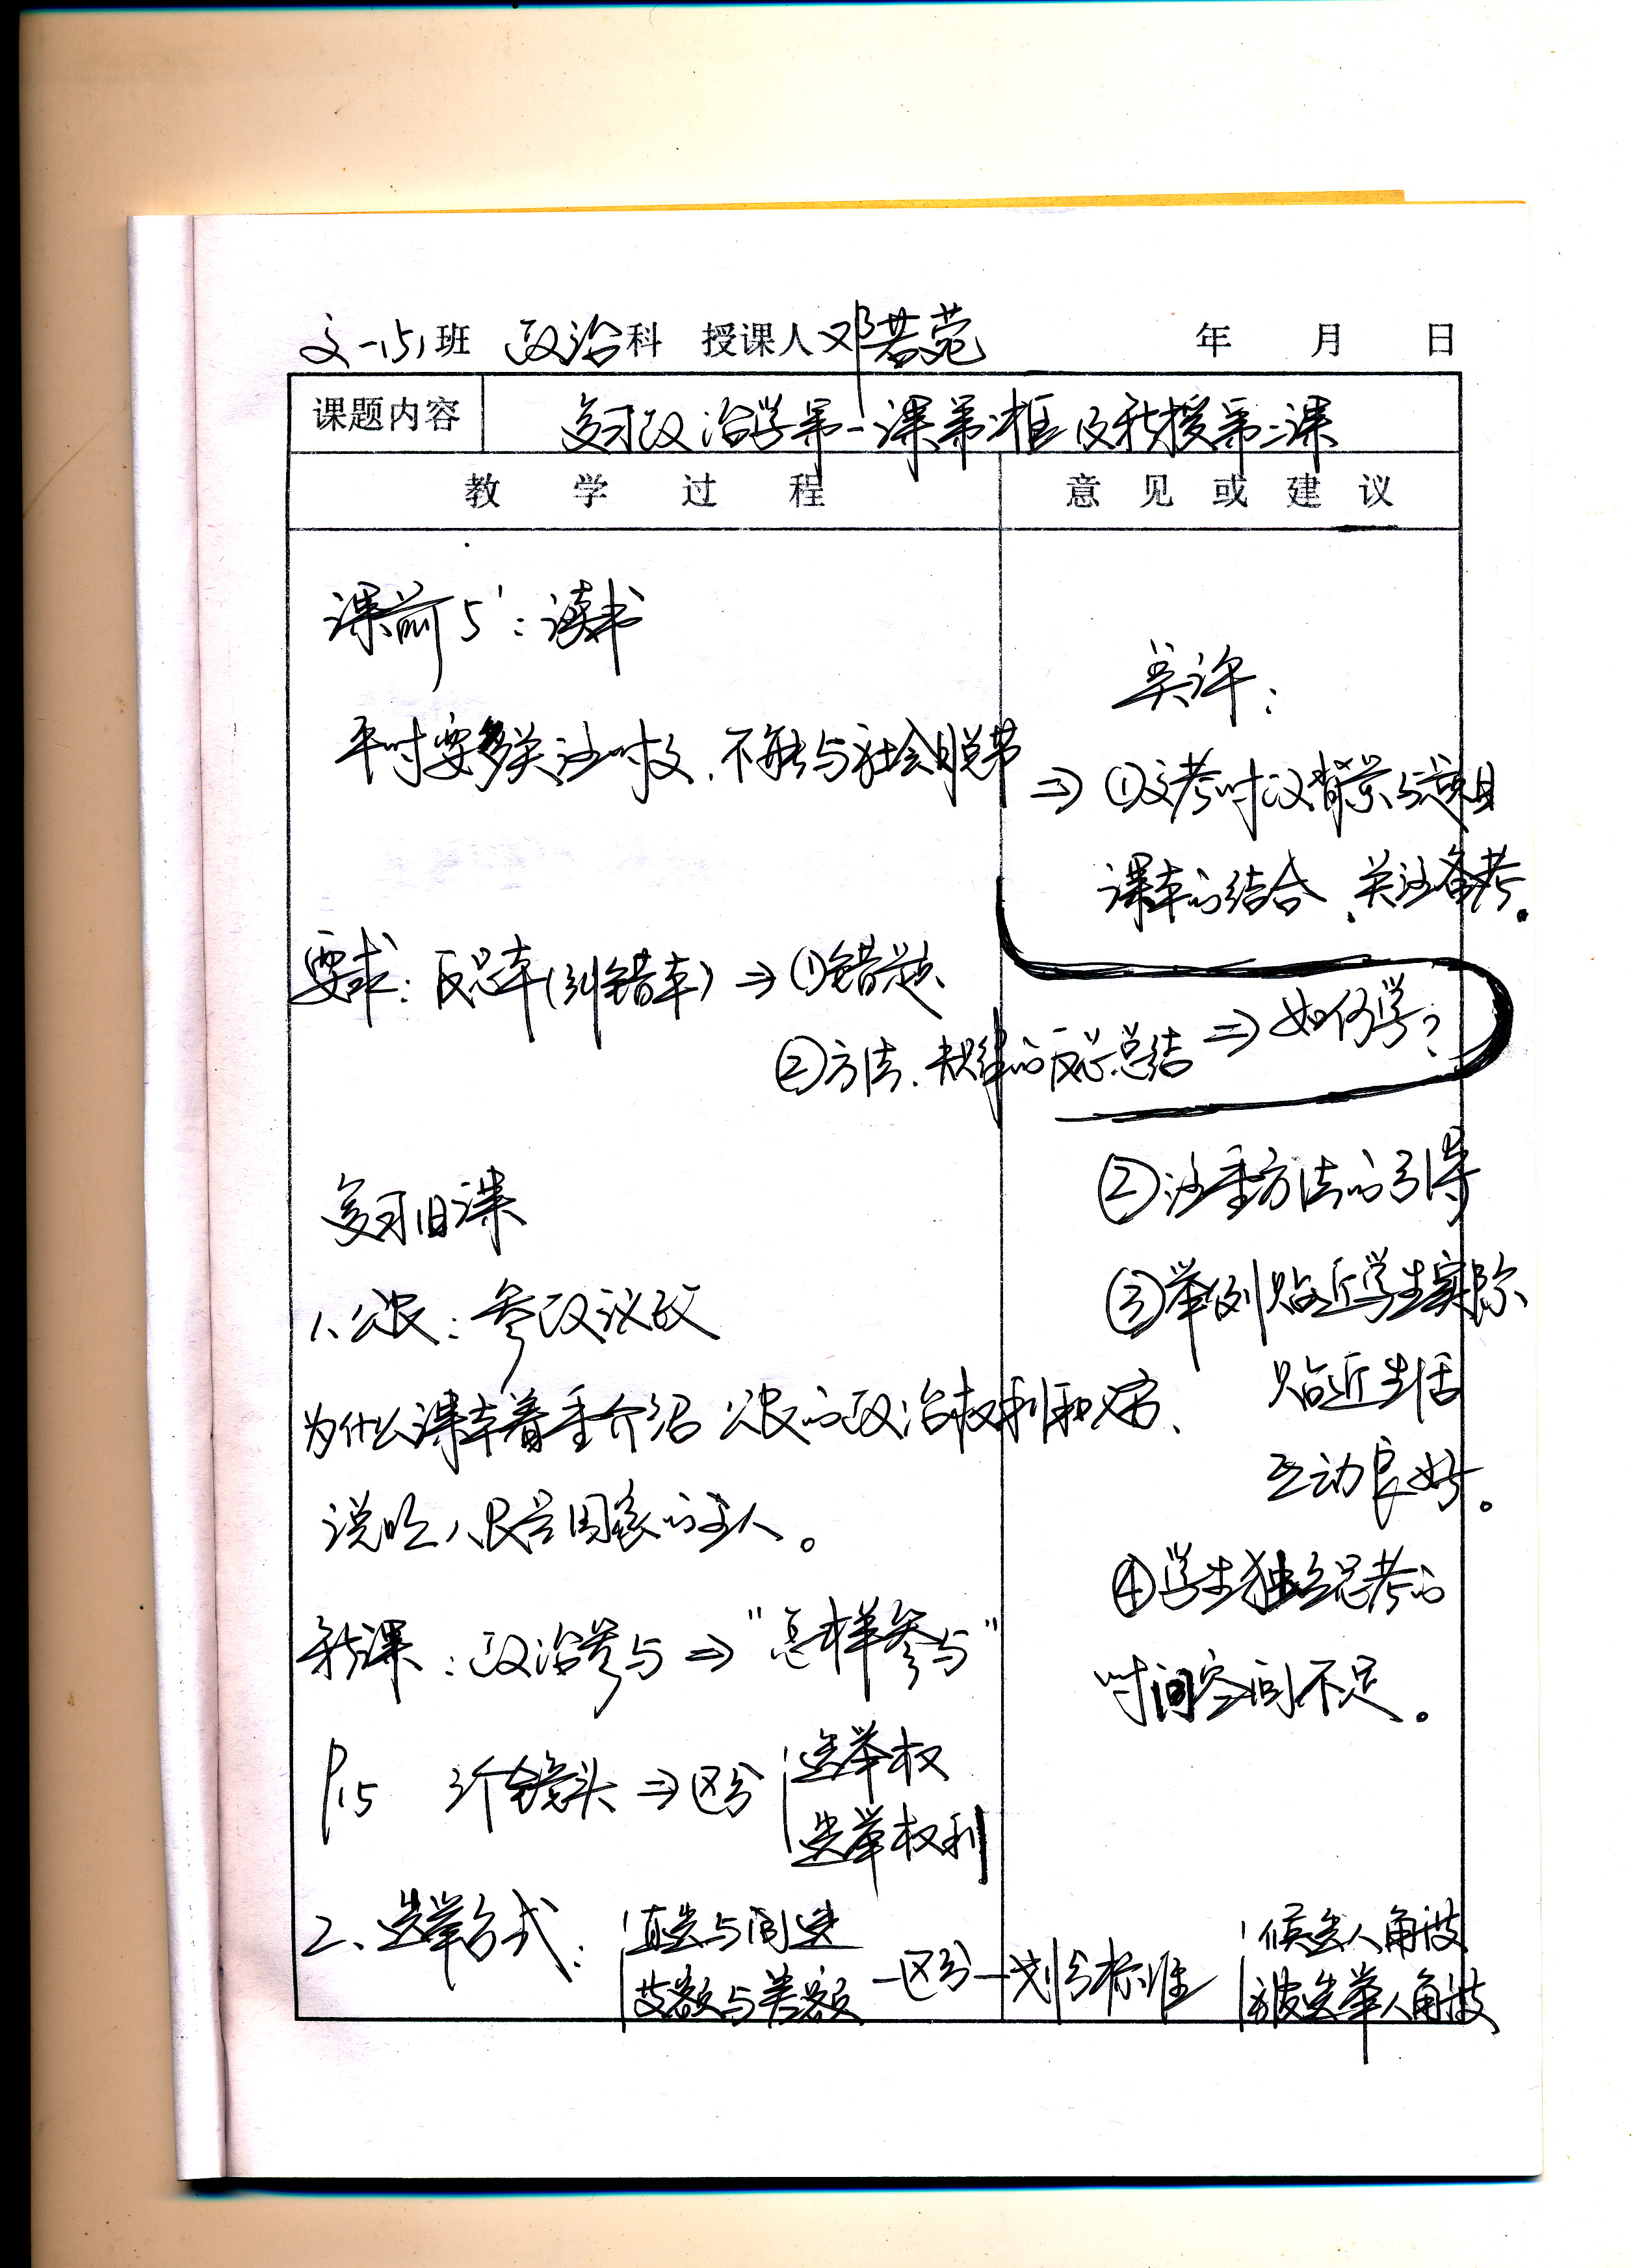 高一(5)班 政治科 授课人 邓若菀 年 月 日
课题内容 复习政治学第一课第2框及新授第二课
教 学 过 程 意 见 或 建 议
课前5'：读书
平时要多关注时政、不能与社会脱节
要求：反思本(纠错本) ⇒ ①错题
②方法、规律的反思总结 ⇒ 如何学？
复习旧课
1、公民：参政议政
为什么课本着重介绍 公民的政治权利和义务、
说明人民是国家的主人。
新课：政治参与 ⇒ "怎样参与"
P15 3个镜头 ⇒ 区分 选举权
选举权利
2、选举方式： 直选与间选
等额与差额 — 区分 — 划分标准
候选人角度
被选举人角度
：
⇒ ① 时政背景与题目
课本的结合、关注备考。
②注重方法的引导
③举例贴近学生实际
贴近生活
互动良好。
④学生独立思考的
时间空间不足。